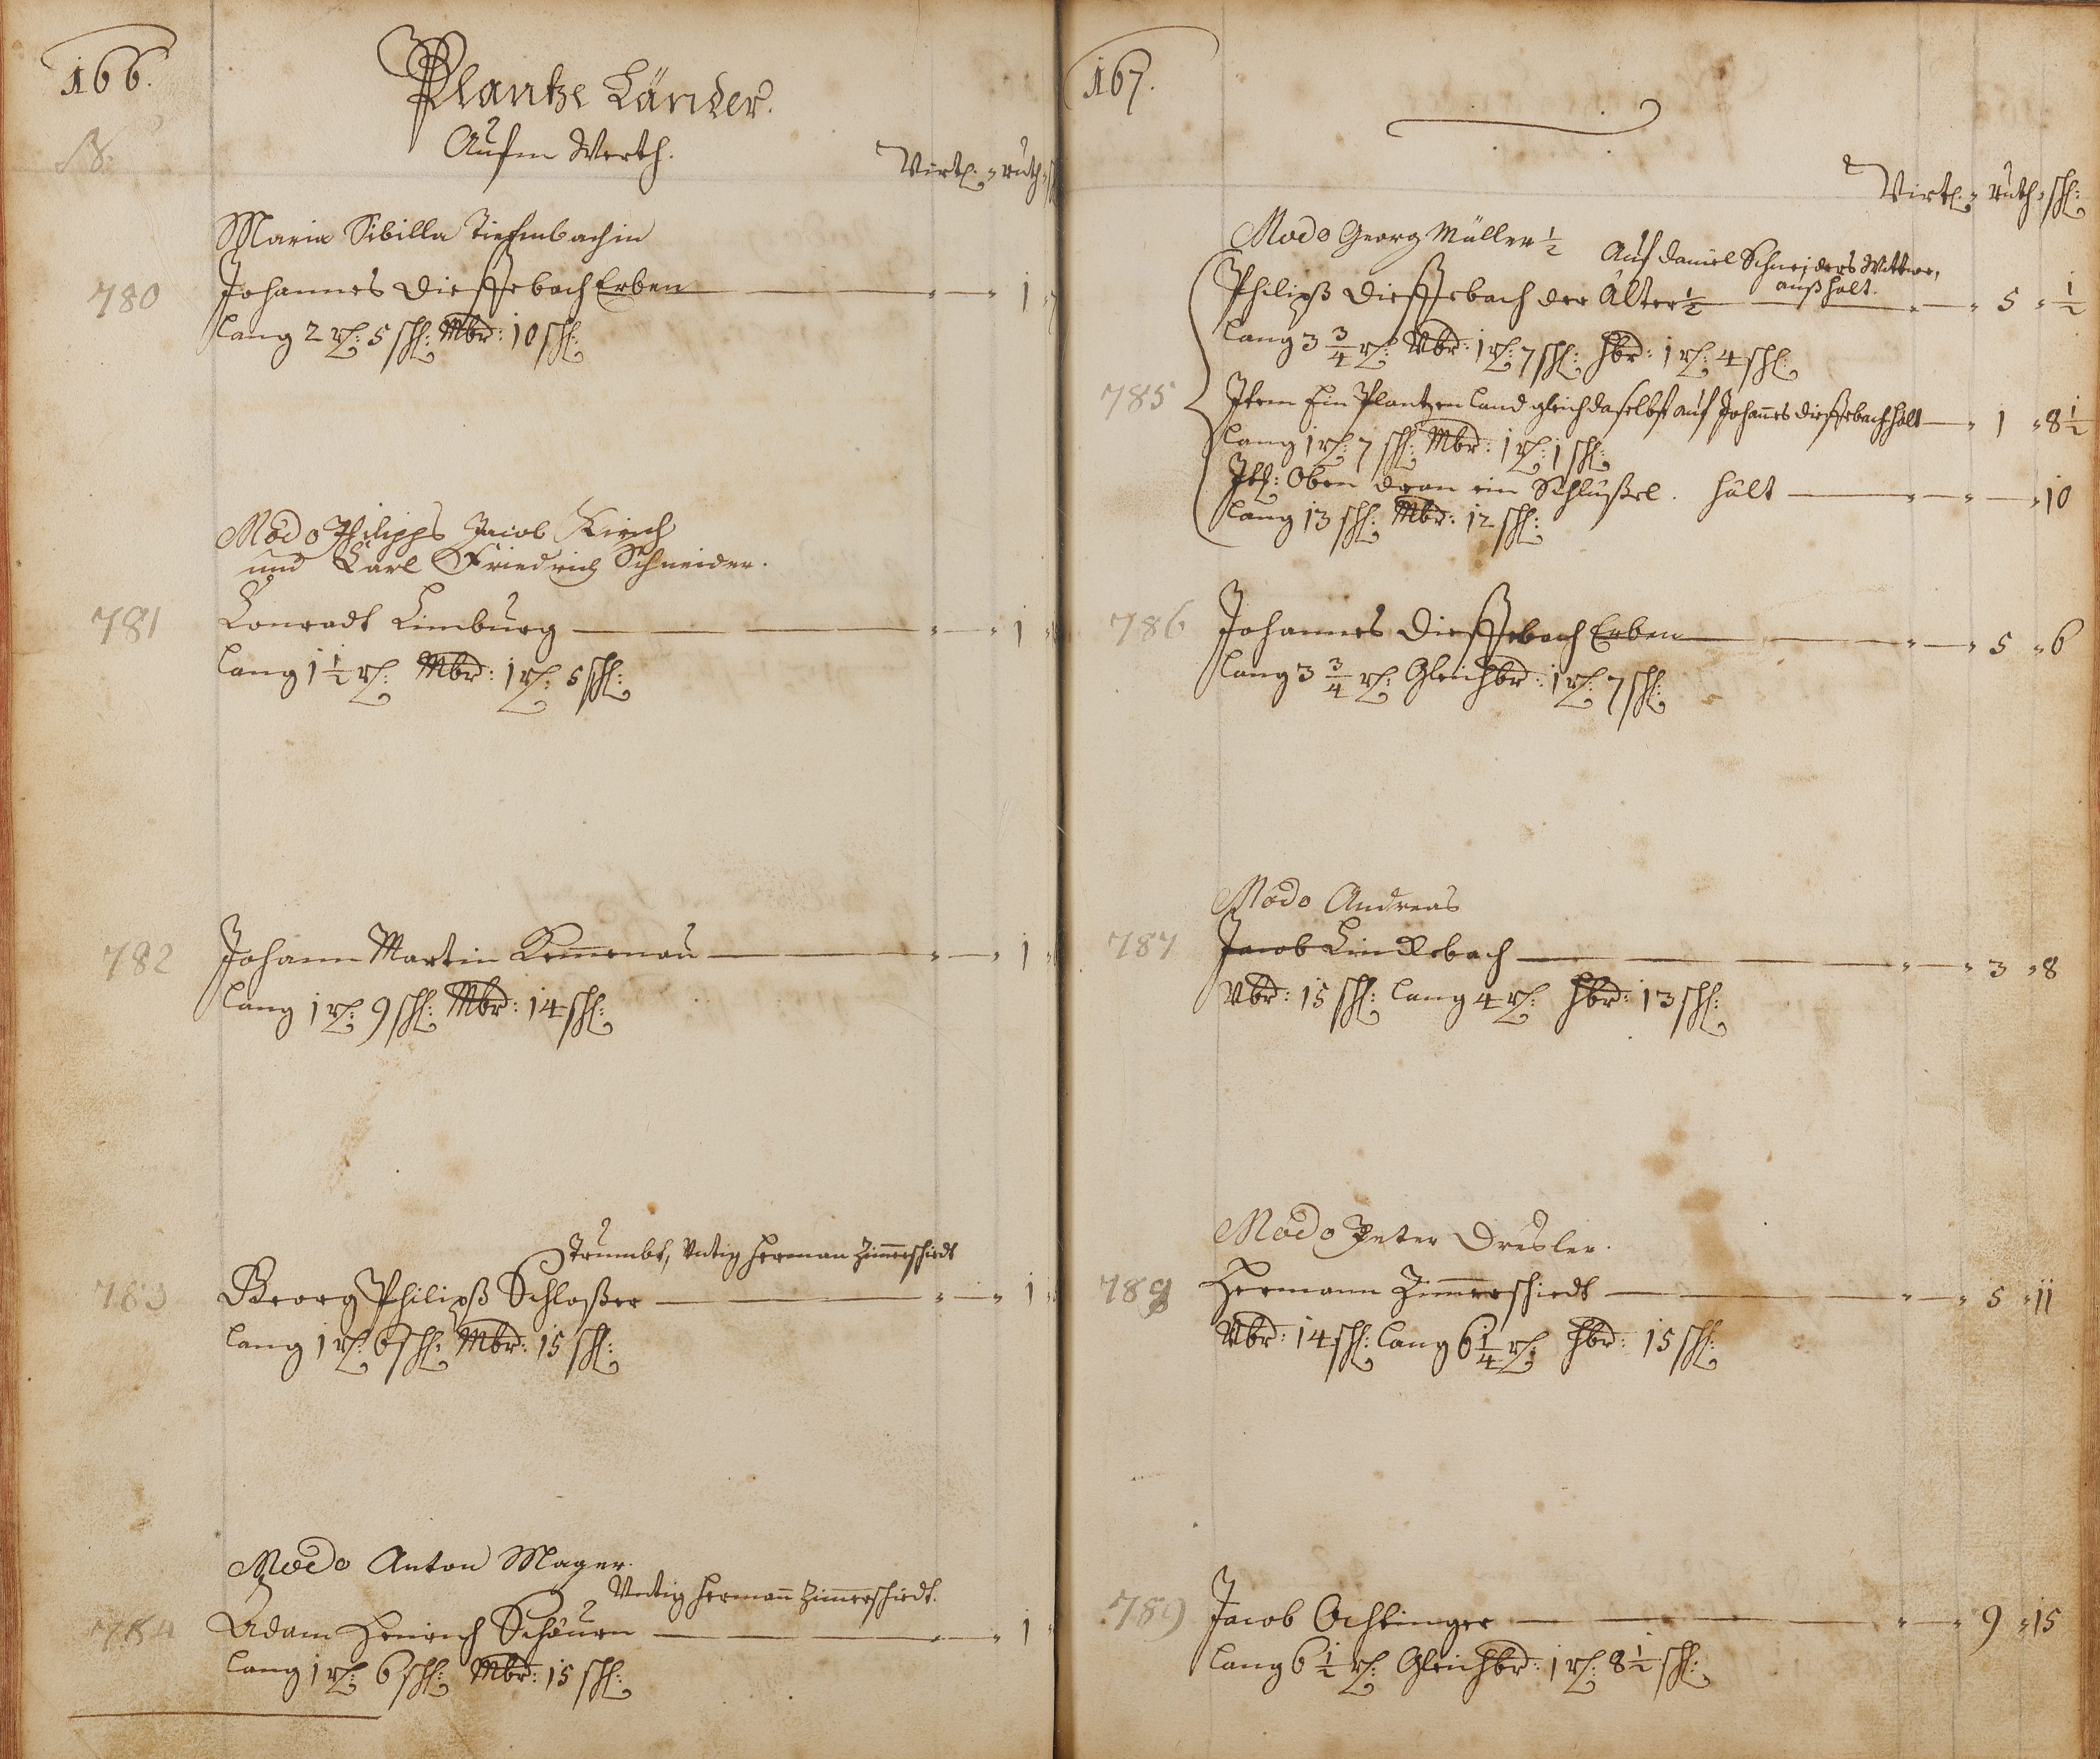 166.
Plantze Länder.
Aufm Werth.
N:
Virtl: " ruth "
Maria Sibilla Tiefenbachin
780 Johannes Dieffebach Erben — " — " 1 " 7
lang 2 rt: 5 sch: Mbrd: 10 sch:
Modo Philipps Jacob Kirch
und Carl Friedrich Schneider.
781 Conradt Limburg — " — " 1 "
lang 1 1/2 rt: Mbrd: 1 rt: 5 sch:
782 Johann Martin Kemenau — " — " 1 "
lang 1 rt: 9 sch: Mbrd: 14 sch:
Herman Zimerschiedt
783 Georg Philipß Schloßer — " — " 1 "
lang 1 rt: 6 sch: Mbrd: 15 sch:
Modo Anton Mager.
Hermañ Zimerschiedt.
784 Adam Henrich — " — " 1 "
lang 1 rt: 6 sch: Mbrd: 15 sch:
167.
Virtl: " ruth " sch:
Modo Georg Müller 1/2 Auf Daniel Schneiders Wittwe,
außhalt.
Philipß Dieffebach der Älter 1/2 — " — " 5 " 1/2
lang 3 3/4 rt: Vbrd: 1 rt: 7 sch: hbrd: 1 rt: 4 sch:
785 Item Ein Plantzen Land gleich daselbst auf Johañes Dieffebach halt — " 1 " 8 1/2
lang 1 rt: 7 sch: Mbrd: 1 rt: 1 sch:
Itt: Oben dran ein Schlüßel. hält — " — " — " 10
lang 13 sch: Mbrd: 12 sch:
786 Johannes Dieffebach Erben — " — " 5 " 6
lang 3 3/4 rt: Gleichbrd: 1 rt: 7 sch:
Modo Andreas
787 Jacob Lindlebach — " — " 3 " 8
Vbrd: 15 sch: lang 4 rt: hbrd: 13 sch:
Modo Peter Dresler.
788 Hermann Zimerschiedt — " — " 5 " 11
Vbrd: 14 sch: lang 6 1/4 rt: hbrd: 15 sch:
789 Jacob — " — " 9 " 15
lang 6 1/2 rt: Gleichbrd: 1 rt: 8 1/2 sch: